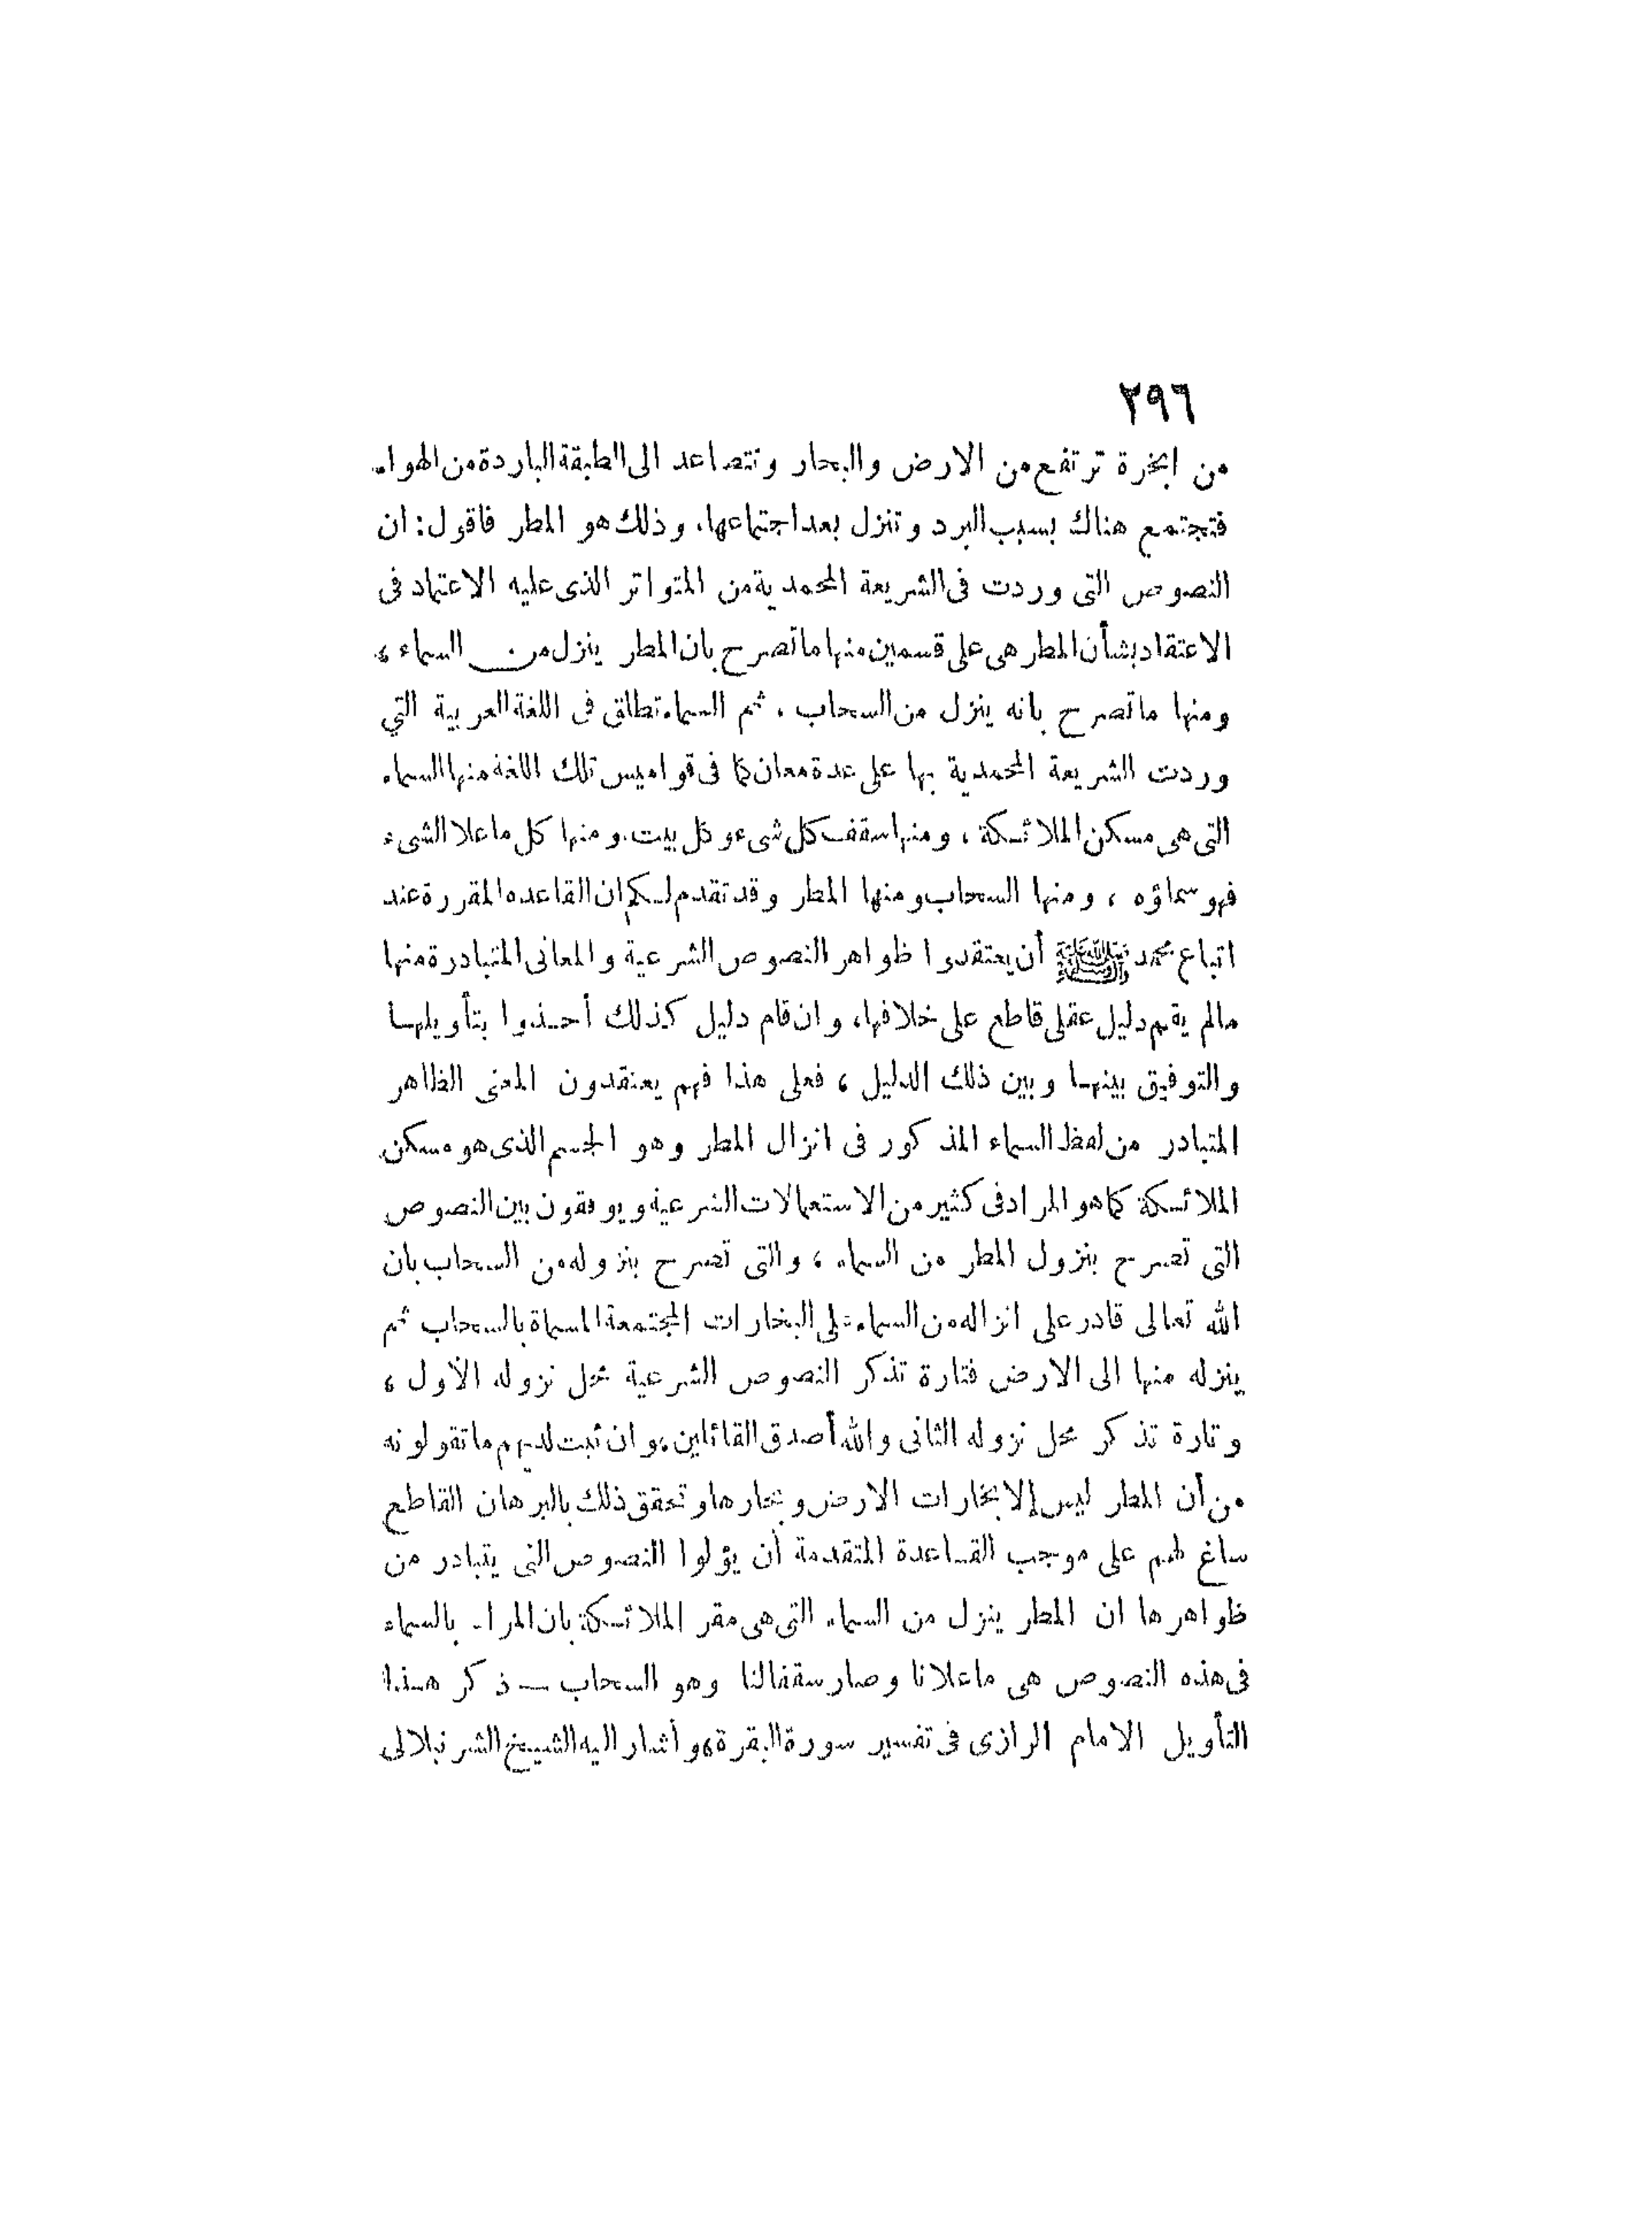 ٢٩٦
من ابخرة ترتفع من الارض والبحار وتتصاعد الى الطبقة الباردة من الهواء
فتجتمع هناك بسبب البرد وتنزل بعد اجتماعها، وذلك هو المطر فاقول: ان
النصوص التى وردت فى الشريعة المحمدية من المتواتر الذى عليه الاعتماد فى
الاعتقاد بشأن المطر هى على قسمين منها ما تصرح بان المطر ينزل من السماء ،
ومنها ما تصرح بانه ينزل من السحاب . ثم السماء تطلق فى اللغة العربية التي
وردت الشريعة المحمدية بها على عدة معان كما فى قواميس تلك اللغة منها السماء
التى هى مسكن الملائكة ، ومنها سقف كل شىء وكل بيت . ومنها كل ما علا الشىء
فهو سماؤه ، ومنها السحاب ومنها المطر وقد تقدم لكم ان القاعده المقررة عند
اتباع محمد ﷺ أن يعتقدوا ظواهر النصوص الشرعية والمعانى المتبادرة منها
مالم يقم دليل عقلى قاطع على خلافها، وان قام دليل كذلك أخذوا بتأويلها
والتوفيق بينها وبين ذلك الدليل ، فعلى هذا فهم يعتقدون المعنى الظاهر
المتبادر من لفظ السماء المذكور فى انزال المطر وهو الجسم الذى هو مسكن
الملائكة كما هو المراد فى كثير من الاستعمالات الشرعية ويوفقون بين النصوص
التى تصرح بنزول المطر من السماء ، والتى تصرح بنزوله من السحاب بان
الله تعالى قادر على انزاله من السماء على البخارات المجتمعة المسماة بالسحاب ثم
ينزله منها الى الارض فتارة تذكر النصوص الشرعية محل نزوله الأول ،
وتارة تذكر محل نزوله الثانى والله أصدق القائلين، وان ثبت لديهم ما تقولونه
من أن المطر ليس إلا بخارات الارض وبحارها وتحقق ذلك بالبرهان القاطع
ساغ لهم على موجب القاعدة المتقدمة أن يؤلوا النصوص التى يتبادر من
ظواهرها ان المطر ينزل من السماء التى هى مقر الملائكة بان المراد بالسماء
فى هذه النصوص هى ما علانا وصار سقفا لنا وهو السحاب — ذكر هذا
التأويل الامام الرازى فى تفسير سورة البقرة، وأشار اليه الشيخ الشرنبلالى